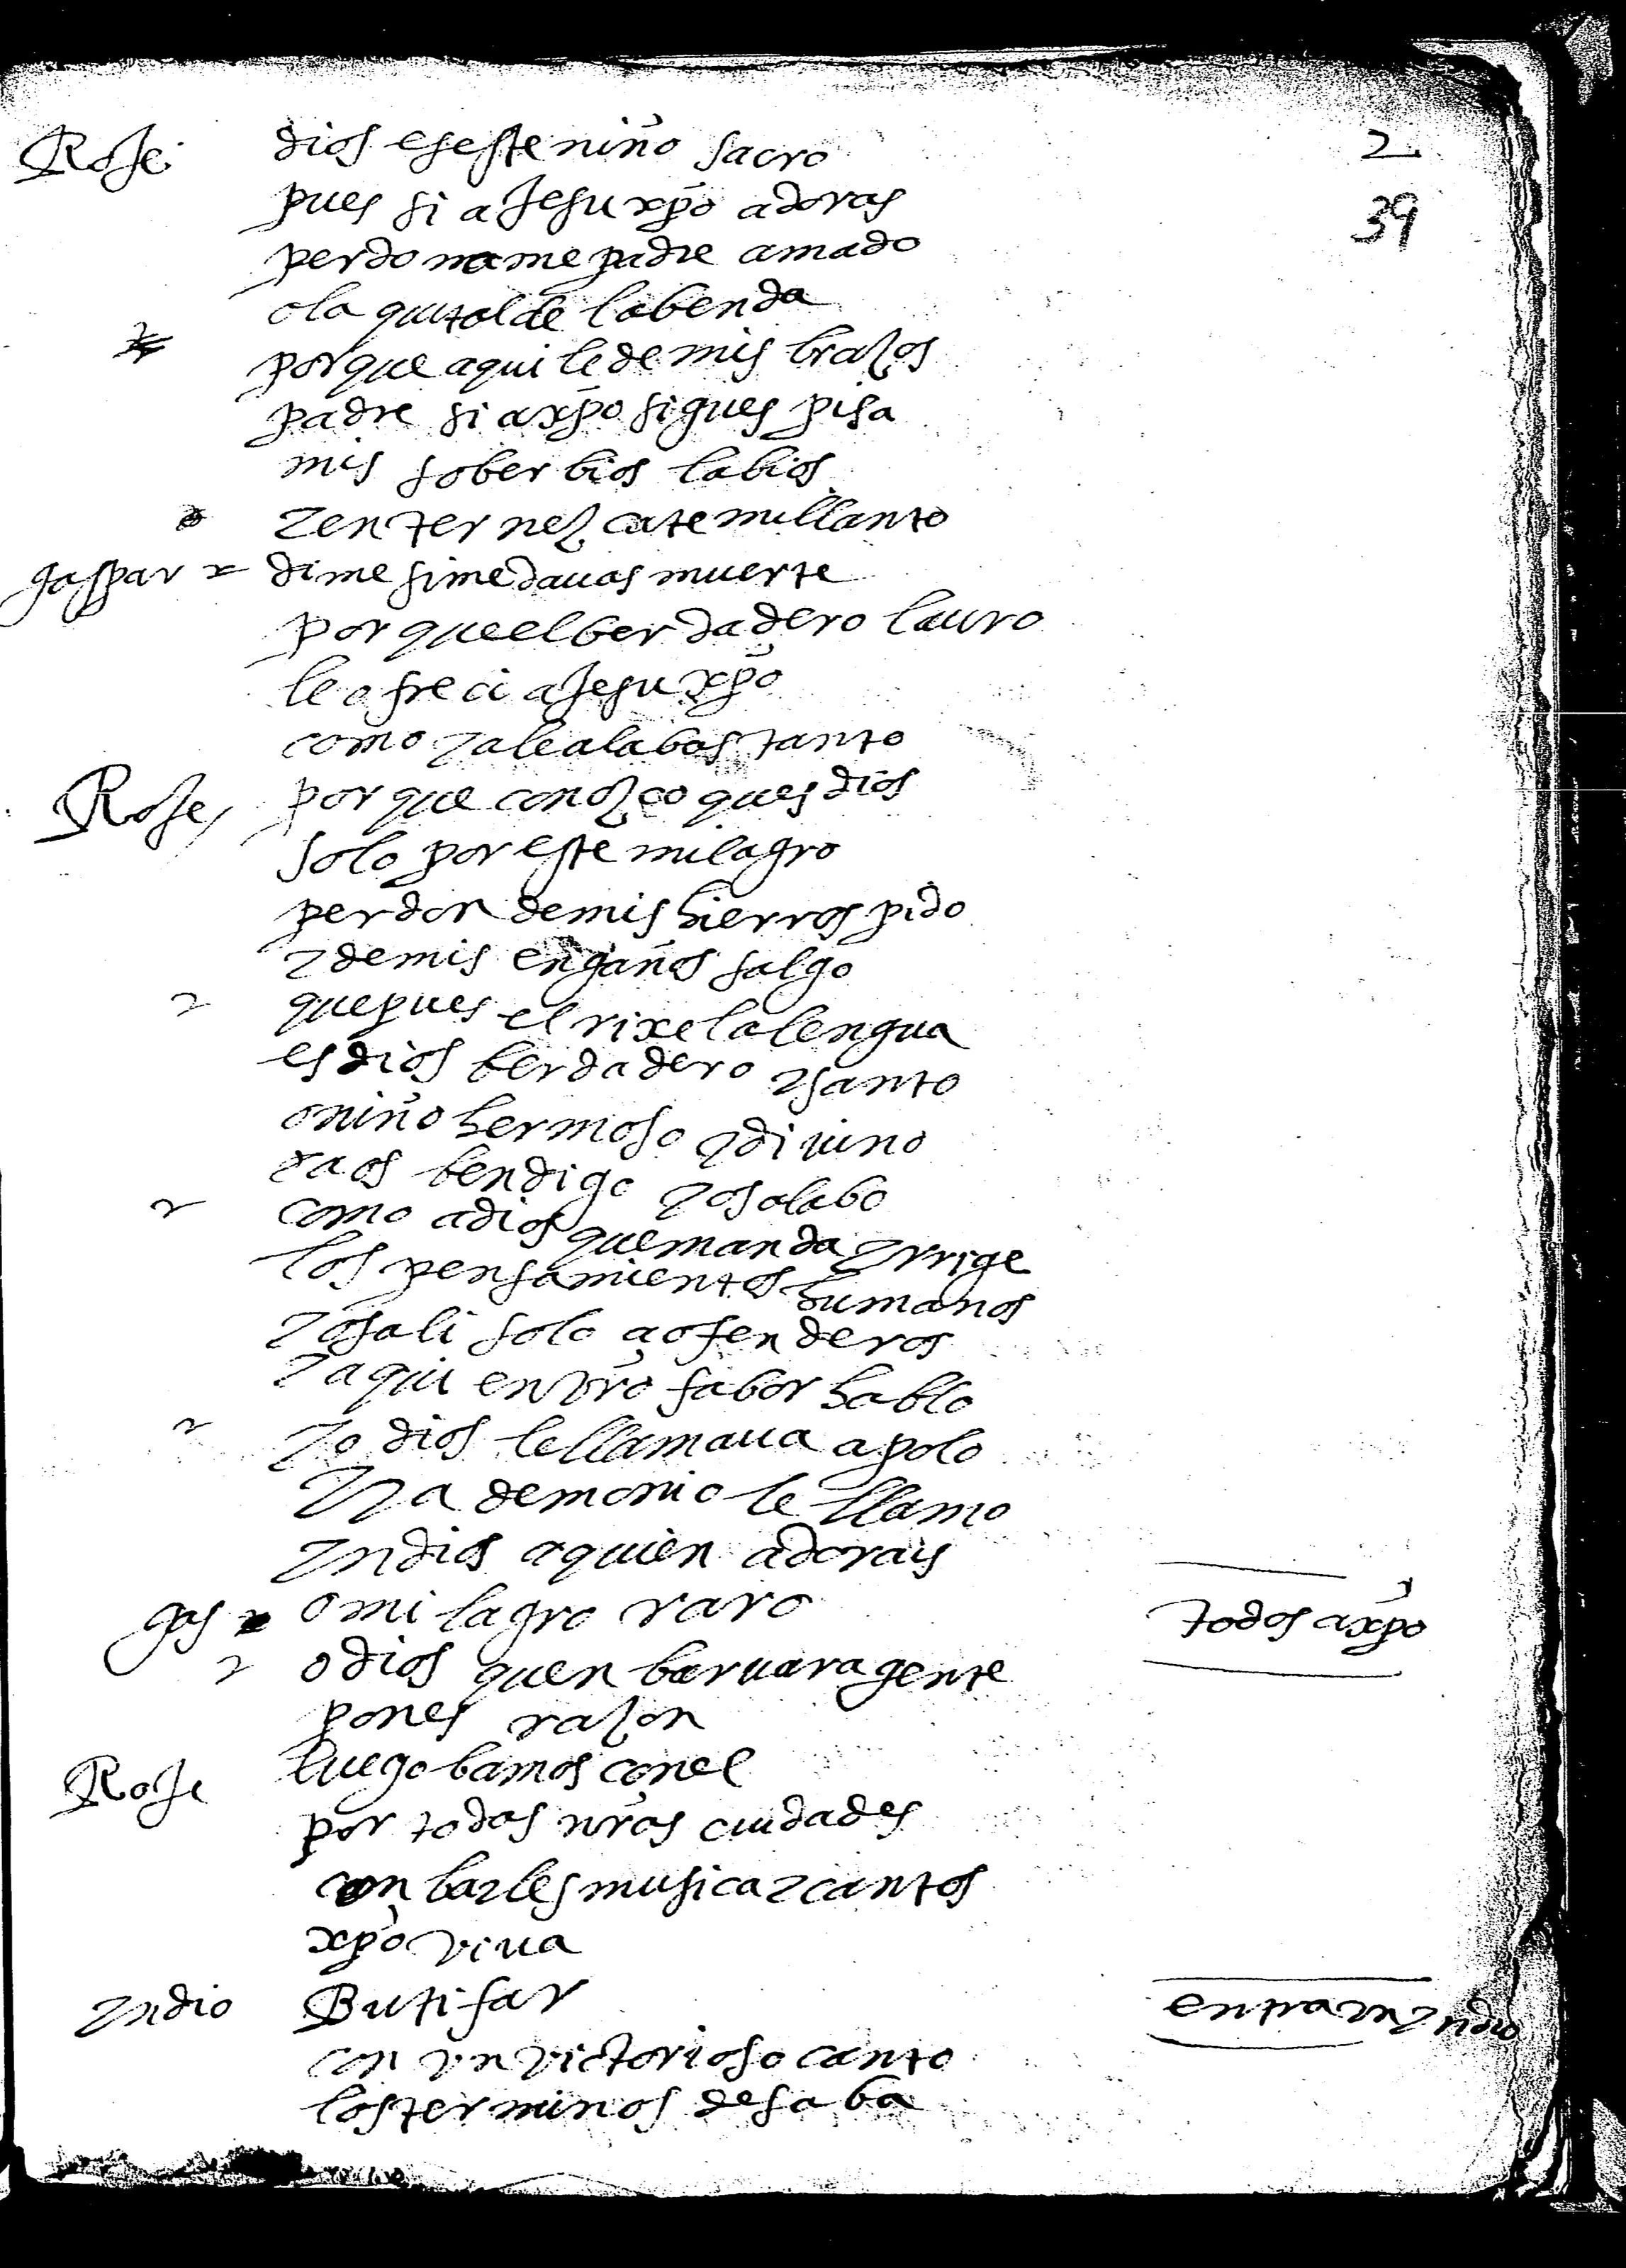 2
39
Rose dios es este niño sacro
pues si a Jesu xpo adoras
perdoname padre amado
ola quitalde la benda
porque aqui le de mis braços
padre si a xpo sigues pisa
mis soberbios labios
y enternezcate mi llanto
gaspar dime si me dauas muerte
porque el berdadero lauro
le ofreci a Jesu xpo
como ya le alabas tanto
Rose porque conozco ques dios
solo por este milagro
perdon de mis hierros pido
y de mis engaños salgo
que pues el rixe la lengua
es dios berdadero y santo
o niño hermoso y diuino
ya os bendigo y os alabo
como a dios que manda y rrige
los pensamientos humanos
yo sali solo a ofenderos
y aqui en vro fabor hablo
yo dios le llamaua apolo
y ya demonio le llamo
yndios a quien adorais
todos a xpo
gas o milagro raro
o dios quen baruara gente
pones razon
Rose luego bamos con el
por todas nras ciudades
con bayles musica y cantos
xpo viua
entra un yndio
yndio Butifar
con un victorioso canto
los terminos de saba